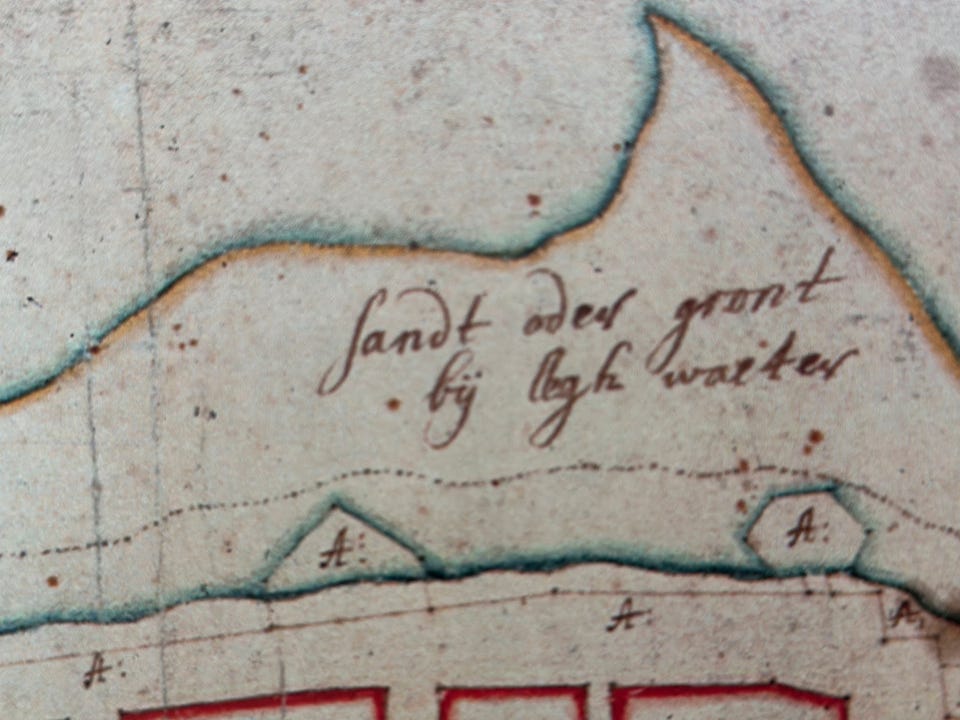 sandt oder gront
bÿ legh waeter
A:
A:
A:
A:
A: